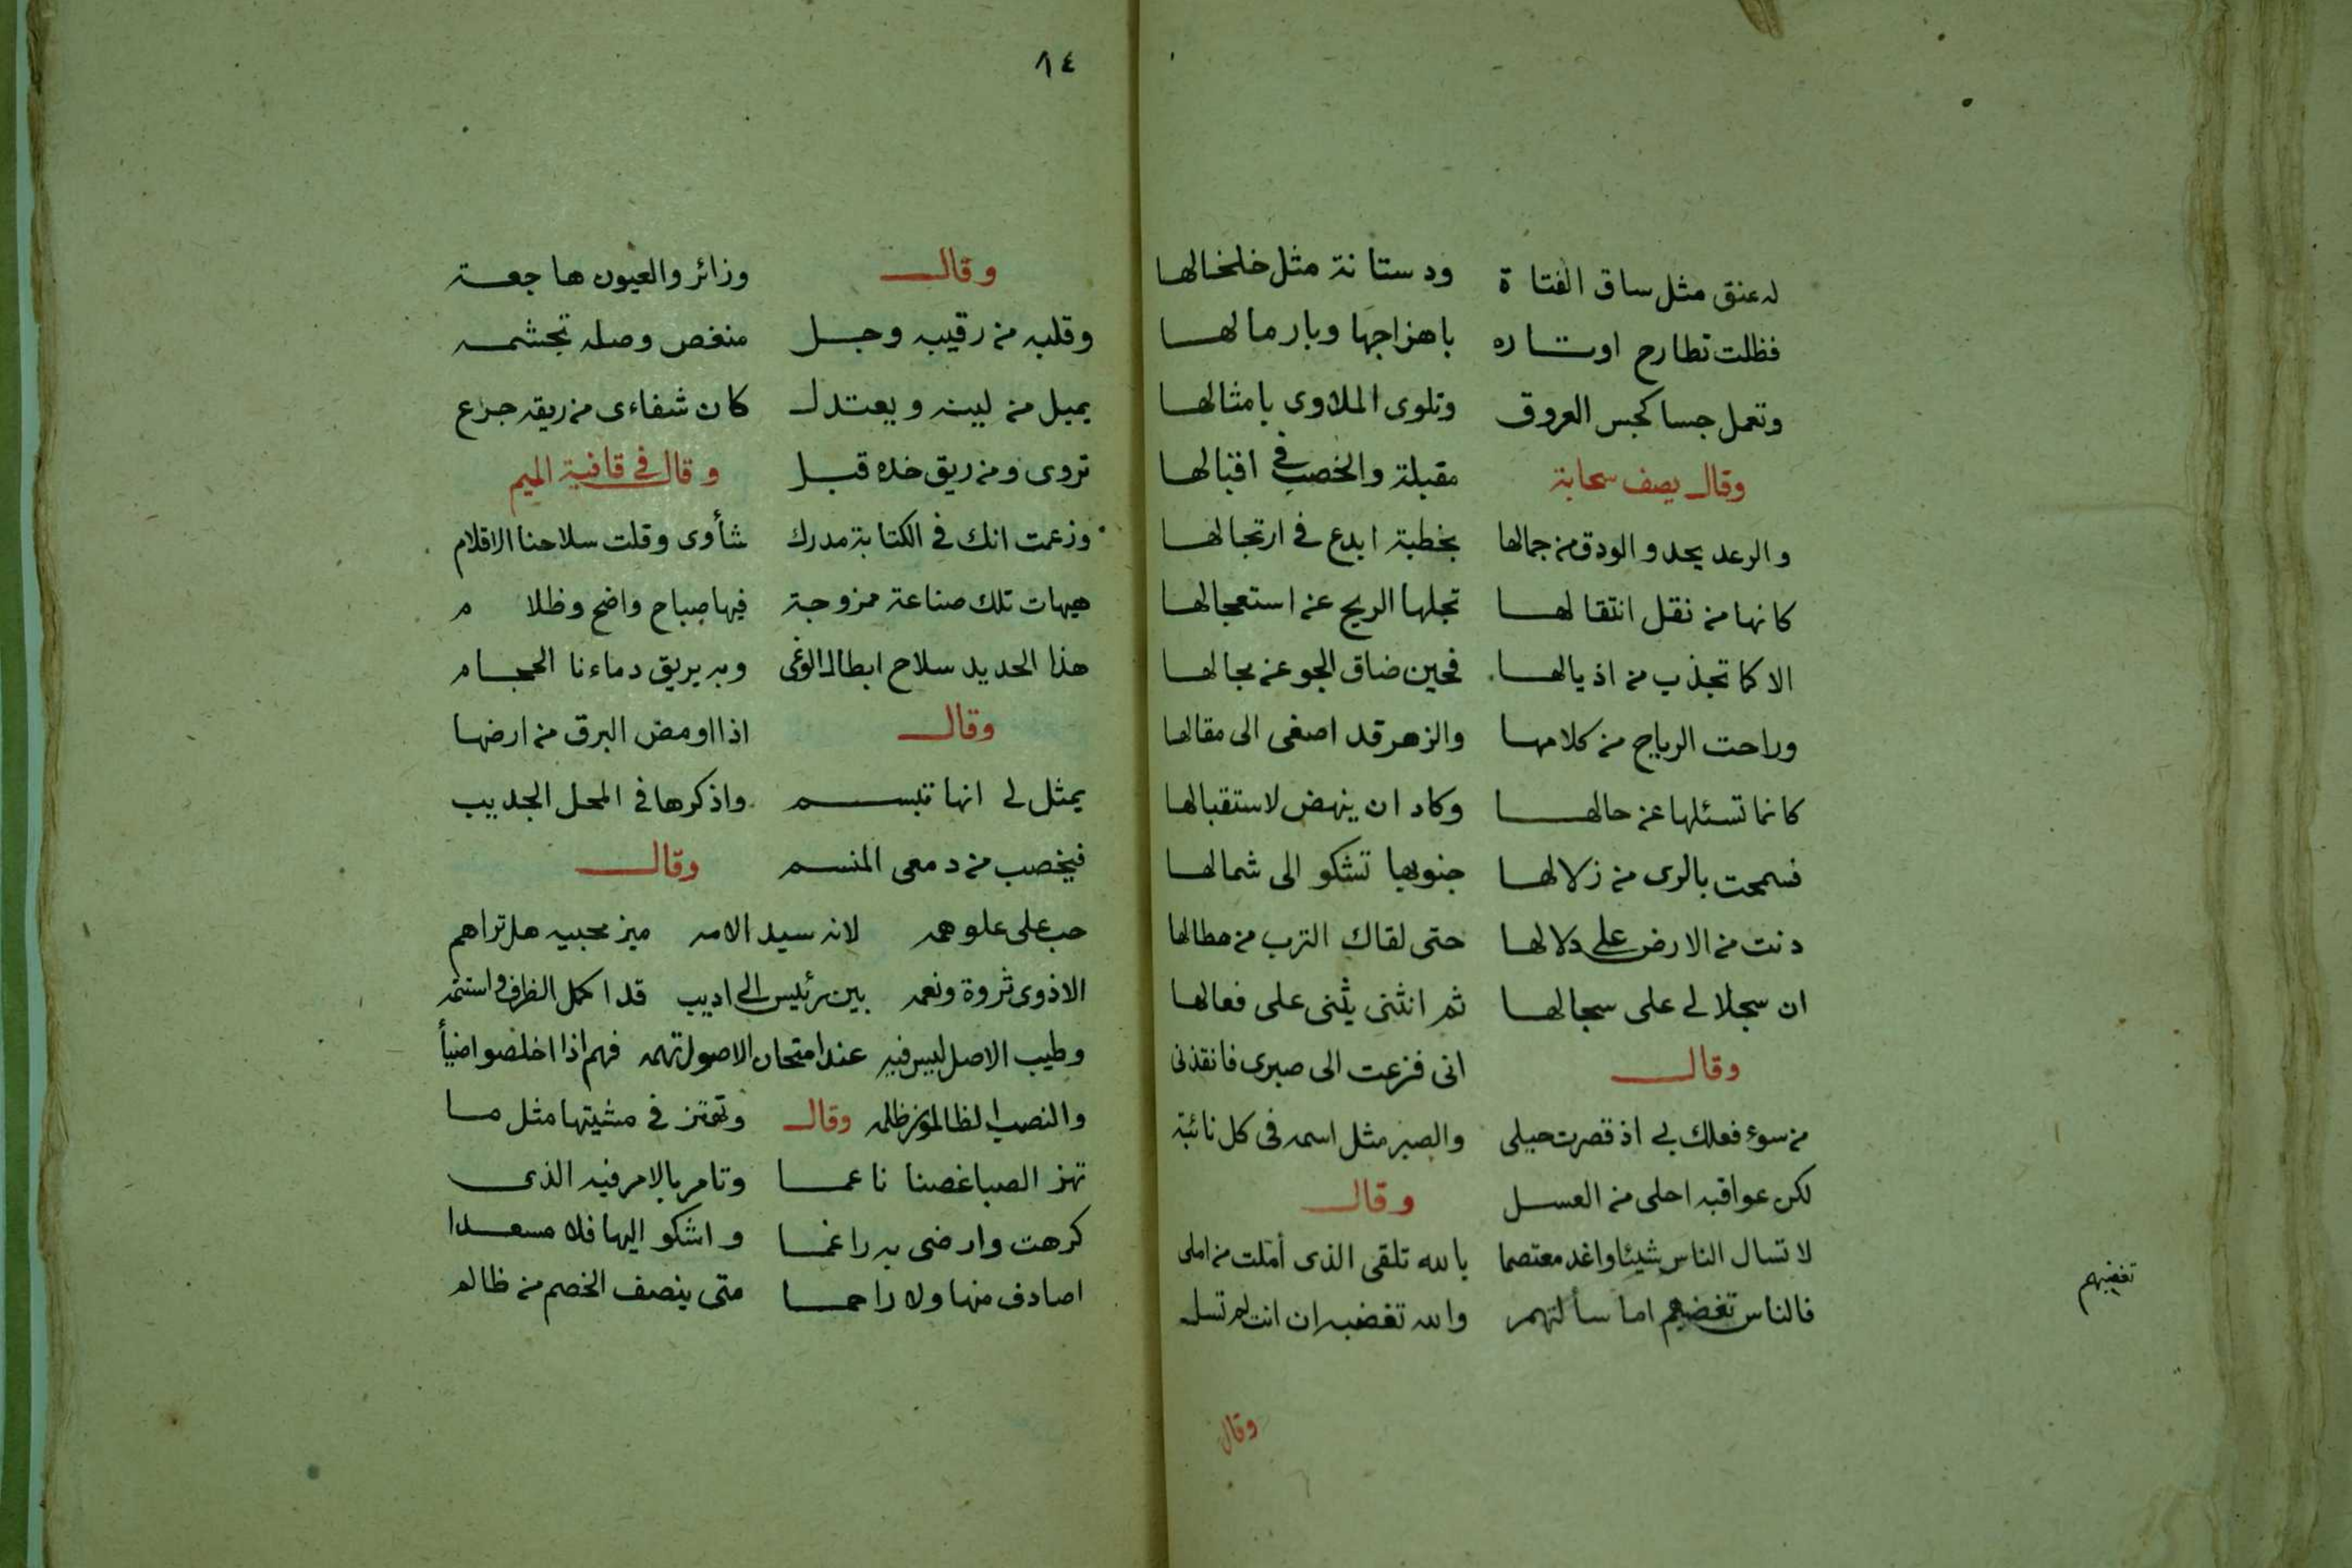 له عنق مثل ساق الفتا ة ودستانة مثل خلخالها
فظلت تطارح اوتاره باهزاجها وبارمالها
وتعمل جسا كجس العروق وتلوى الملاوى بامثالها
وقال يصف سحابة مقبلة والخصب في اقبالها
والرعد يحدو الودق من جمالها بخطبة ابدع في ارتجالها
كانها من نقل انتقالها تجلها الريح عن استعجالها
الا كما تجذب من اذيالها فحين ضاق الجو عن مجالها
وراحت الرياح من كلامها والزهر قد اصغى الى مقالها
كانما تسئلها عن حالها وكاد ان ينهض لاستقبالها
فسمحت بالرى من زلالها جنوبها تشكو الى شمالها
دنت من الارض على دلالها حتى لقاك الترب من هطالها
ان سجلا لى على سجالها ثم انثنى يثنى على فعالها
وقال انى فزعت الى صبرى فانقذنى
من سوء فعلك بى اذ قصرت حيلى والصبر مثل اسمه فى كل نائبة
لكن عواقبه احلى من العسل وقال
لا تسال الناس شيئا واغد معتصما بالله تلقى الذى أملت من املى
فالناس تغضبهم اما سألتهم والله تغضبه ان انت لم تسل
تغضبهم
وقال
٨٤
وقال وزائر والعيون هاجعة
وقلبه من رقيبه وجل منغص وصله تجشمه
يميل من لينه ويعتدل كان شفاءى من ريقه جرع
تروى ومن ريق خده قبل وقال فى قافية الميم
وزعمت انك فى الكتابة مدرك شأوى وقلت سلاحنا الاقلام
هيهات تلك صناعة ممزوجة فيها صباح واضح وظلا م
هذا الحديد سلاح ابطال الوغى وبه يريق دماءنا الحجام
وقال اذا اومض البرق من ارضها
يمثل لى انها تبسم واذكرها فى المحل الجديب
فيخصب من دمعى المنسم وقال
حب على علو همه لانه سيد الامه ميز محبيه هل تراهم
الا ذوى ثروة ونعمه بين رئيس الى اديب قد اكمل الظرف واستتمه
وطيب الاصل ليس فيه عند امتحان الاصول تهمه فهم اذا اخلصوا ضيأ
والنصب الظالمون ظلمه وقال وتهتز فى مشيتها مثل ما
تهز الصبا غصنا ناعما وتامر بالامر فيه الذى
كرهت وارضى به راغما واشكو اليها فلا مسعدا
اصادف منها ولا راحما متى ينصف الخصم من ظالم